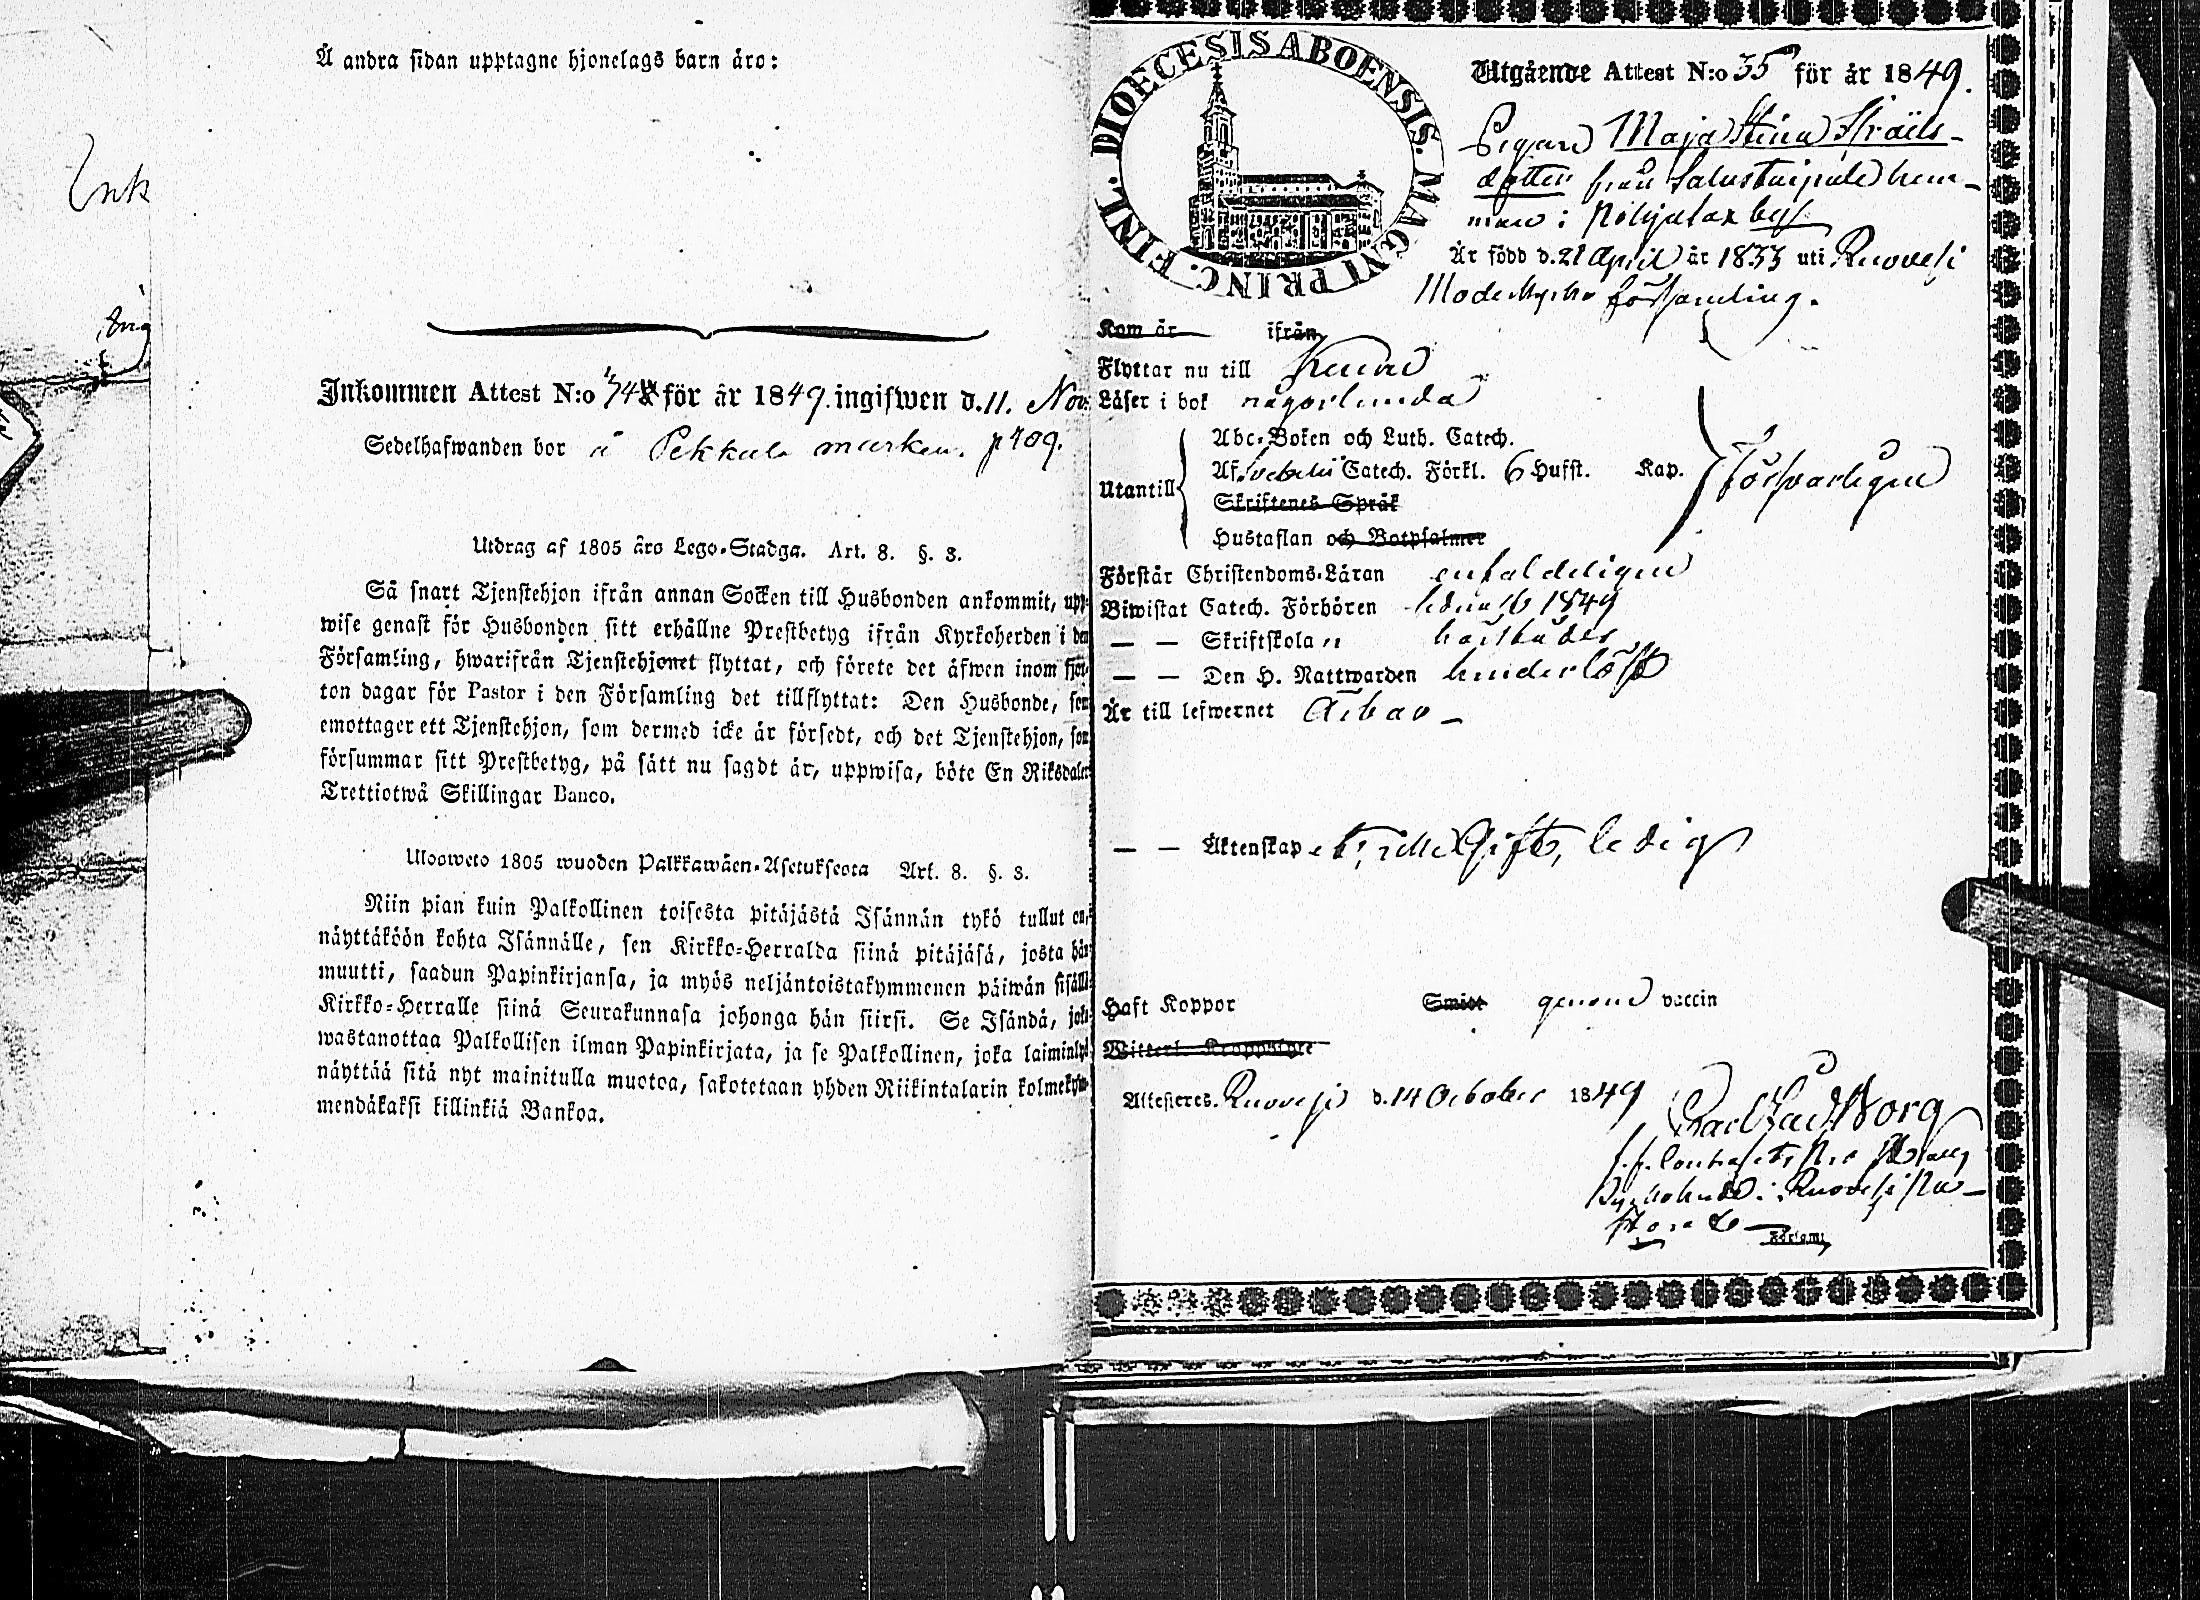 Å andra sidan upptagne hjonelags barn äro:
Ink
Inkommen Attest N:o 74 för år 1849. ingifwen d. 11. Nov.
Sedelhafwanden bor å Pekkala marken. p 409.
Utdrag af 1805 års Lego-Stadga. Art. 8. §. 3.
Så snart Tjenstehjon ifrån annan Socken till Husbonden ankommit, upp-
wise genast för Husbonden sitt erhållne Prestbetyg ifrån Kyrkoherden i den
Församling, hwarifrån Tjenstehjonet flyttat, och förete det äfwen inom fjor-
ton dagar för Pastor i den Församling det tillflyttat: Den Husbonde, som
emottager ett Tjenstehjon, som dermed icke är försedt, och det Tjenstehjon, som
försummar sitt Prestbetyg, på sätt nu sagdt är, uppwisa, böte En Riksdaler
Trettiotwå Skillingar Banco.
Ulosweto 1805 wuoden Palkkawäen-Asetuksesta Art. 8. §. 3.
Niin pian kuin Palkollinen toisesta pitäjästä Isännän tykö tullut on,
näyttäköön kohta Isännälle, sen Kirkko-Herralda siinä pitäjäsä, josta hän
muutti, saadun Papinkirjansa, ja myös neljäntoistakymmenen päiwän sisällä
Kirkko-Herralle siinä Seurakunnasa johonga hän siirsi. Se Isändä, joka
wastanottaa Palkollisen ilman Papinkirjata, ja se Palkollinen, joka laiminlyö
näyttää sitä nyt mainitulla muotoa, sakotetaan yhden Riikintalarin kolmekym-
mendäkaksi killinkiä Bankoa.
DIOECESIS ABOENSIS. MAGNI PRINC. FINL.
Utgående Attest N:o 35 för år 1849.
Pigan Maja Stina Israels-
dotter från Salustaipale hem-
man i Pohjalax by
Är född d. 21 April år 1833 uti Ruovesi
Moderkyrko församling.
Kom år ifrån
Flyttar nu till
Läser i bok någorlunda
Abc-Boken och Luth. Catech.
Utantill Af Svebelii Catech. Förkl. 6 Hufst. Kap. försvarligen
Skriftenes Språk
Hustaflan och Botpsalmer
Förstår Christendoms-Läran enfaldeligen
Biwistat Catech. Förhören 1849
— — Skriftskola
— — Den H. Nattwarden hinderlöst
Är till lefwernet Ärbar
— — Äktenskap Gift, ledig
Haft Koppor Smitt genom vaccin
Witterl. Kroppslyte
Attesteres. Ruovesi d. 14 October 1849
Borg
i Ruovesi